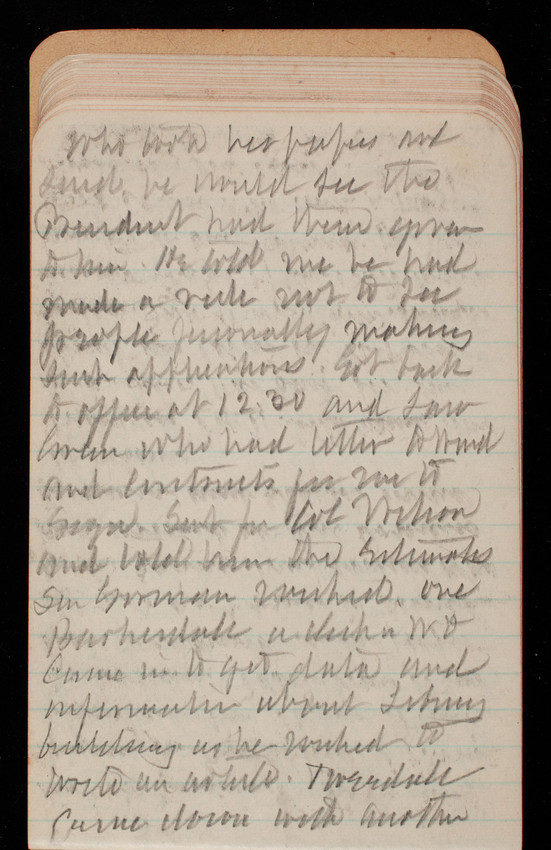 who took his papers and
said he would see the
President had them given
to him. He told me he had
made a rule not to see
people personally making
such applications. Got back
to office at 12:30 and saw
Green who had letter to Ward
and contracts for me to
sign. Sent for Col Wilson
and told him the estimates
Sen Gorman wished. one
Barksdale a clerk in W D
Came in to get data and
information about Library
building as he wished to
write an article. Tweedale
Came down with another